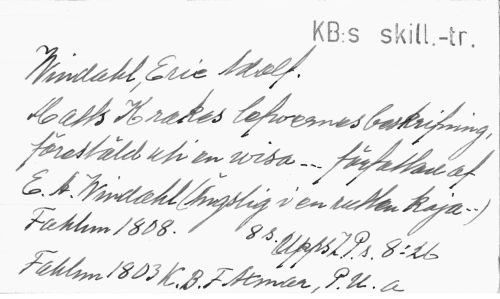 KB:s skill.-tr.
Windahl, Eric Adolf.
Matts Krakes lefvernes beskrifning,
föreställd uti en wisa -- författad af
E. A. Windahl (Ängslig i en rutten koja --)
Fahlun 1808. 8 s. Upps. Z.P.s. 8:26
Fahlun 1803 K. B. F. Atmar, P. U. a